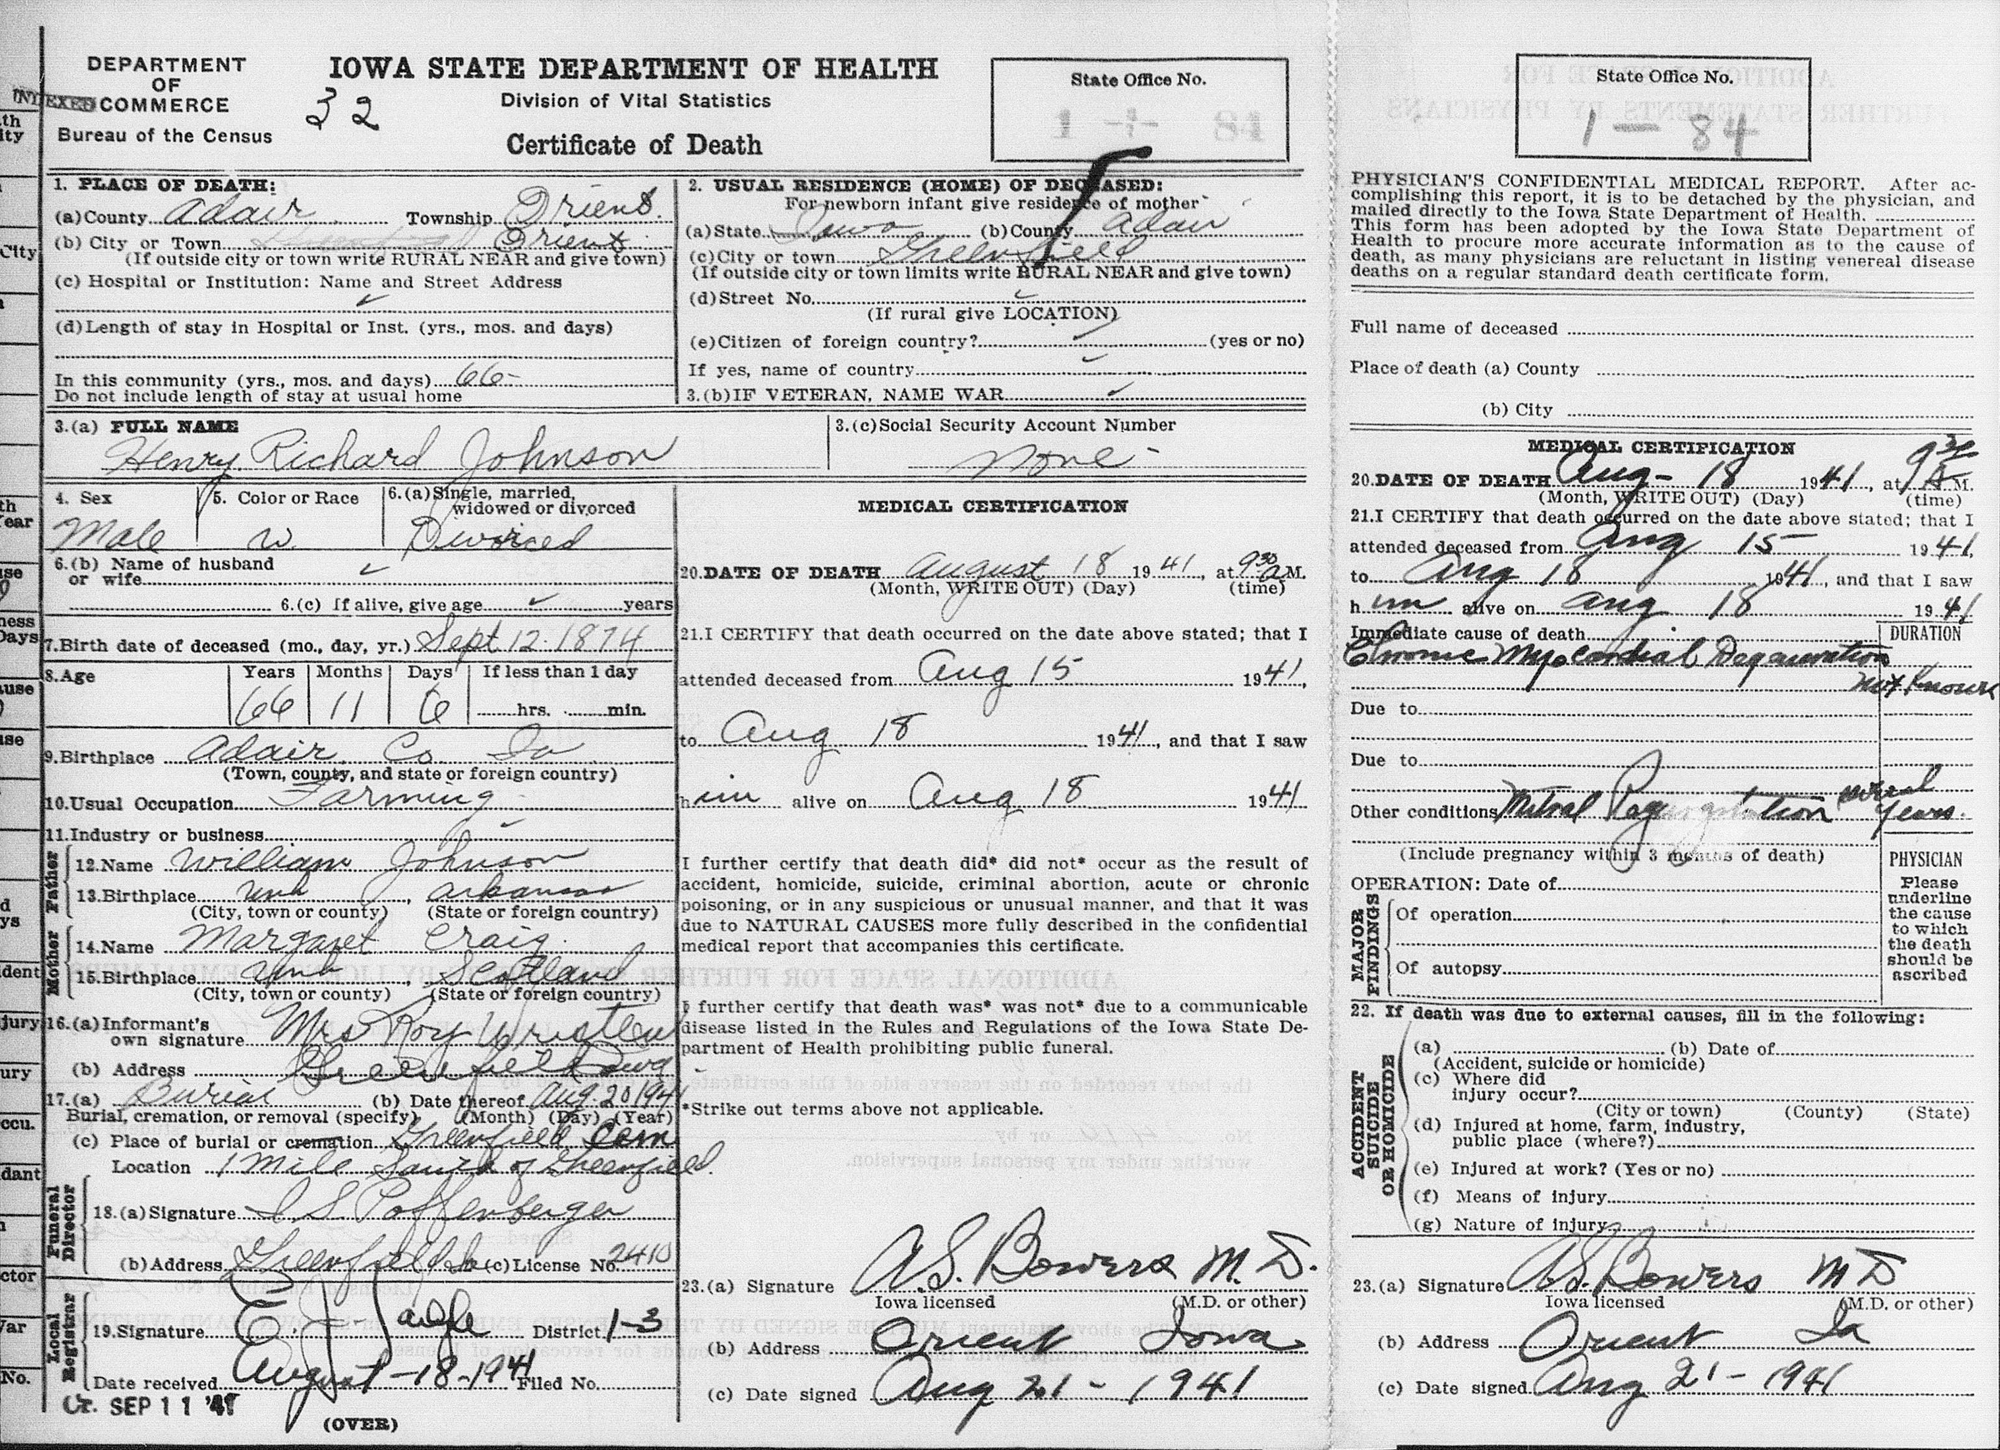 DEPARTMENT
OF
COMMERCE
INDEXED
Bureau of the Census
IOWA STATE DEPARTMENT OF HEALTH
32
Division of Vital Statistics
Certificate of Death
State Office No.
1 - 84
1. PLACE OF DEATH:
(a) County Adair Township Orient.
(b) City or Town Orient
(If outside city or town write RURAL NEAR and give town)
(c) Hospital or Institution: Name and Street Address
✓
(d) Length of stay in Hospital or Inst. (yrs., mos. and days)
In this community (yrs., mos. and days) 66-
Do not include length of stay at usual home
2. USUAL RESIDENCE (HOME) OF DECEASED:
For newborn infant give residence of mother
(a) State Iowa (b) County Adair
(c) City or town Greenfield
(If outside city or town limits write RURAL NEAR and give town)
(d) Street No. ✓
(If rural give LOCATION)
(e) Citizen of foreign country? ✓ (yes or no)
If yes, name of country ✓
3.(b) IF VETERAN, NAME WAR ✓
3.(a) FULL NAME
Henry Richard Johnson
3.(c) Social Security Account Number
None -
4. Sex
Male
5. Color or Race
W.
6.(a) Single, married,
widowed or divorced
Divorced
6.(b) Name of husband
or wife ✓
6.(c) If alive, give age ✓ years
7. Birth date of deceased (mo., day, yr.) Sept. 12. 1874
8. Age
Years Months Days If less than 1 day
66 11 6 hrs. min.
9. Birthplace Adair Co Ia
(Town, county, and state or foreign country)
10. Usual Occupation Farming
11. Industry or business
Father
12. Name William Johnson
13. Birthplace unk, Arkansas
(City, town or county) (State or foreign country)
Mother
14. Name Margaret Craig
15. Birthplace unk, Scotland
(City, town or county) (State or foreign country)
16.(a) Informant's
own signature Mrs Roy
(b) Address Greenfield Iowa
17.(a) Burial (b) Date thereof Aug. 20 1941
Burial, cremation, or removal (specify) (Month) (Day) (Year)
(c) Place of burial or cremation Greenfield Cem
Location 1 Mile South of Greenfield
Funeral Director
18.(a) Signature I S Poffenberger
(b) Address Greenfield Ia (c) License No. 2410
Local Registrar
19. Signature E. J. District 1-3
Date received August-18-1941 Filed No.
Cr. SEP 11 '41
(OVER)
MEDICAL CERTIFICATION
20. DATE OF DEATH August 18 1941, at 9 30 a M.
(Month, WRITE OUT) (Day) (time)
21. I CERTIFY that death occurred on the date above stated; that I
attended deceased from Aug 15 1941,
to Aug 18 1941, and that I saw
him alive on Aug 18 1941
I further certify that death did* did not* occur as the result of
accident, homicide, suicide, criminal abortion, acute or chronic
poisoning, or in any suspicious or unusual manner, and that it was
due to NATURAL CAUSES more fully described in the confidential
medical report that accompanies this certificate.
I further certify that death was* was not* due to a communicable
disease listed in the Rules and Regulations of the Iowa State De-
partment of Health prohibiting public funeral.
*Strike out terms above not applicable.
23.(a) Signature A.S. Bowers M.D.
Iowa licensed (M.D. or other)
(b) Address Orient Iowa
(c) Date signed Aug 21 - 1941
State Office No.
1 — 84
PHYSICIAN'S CONFIDENTIAL MEDICAL REPORT. After ac-
complishing this report, it is to be detached by the physician, and
mailed directly to the Iowa State Department of Health.
This form has been adopted by the Iowa State Department of
Health to procure more accurate information as to the cause of
death, as many physicians are reluctant in listing venereal disease
deaths on a regular standard death certificate form.
Full name of deceased
Place of death (a) County
(b) City
MEDICAL CERTIFICATION
20. DATE OF DEATH Aug - 18 1941, at 9 30 A.M.
(Month, WRITE OUT) (Day) (time)
21. I CERTIFY that death occurred on the date above stated; that I
attended deceased from Aug 15 1941,
to Aug 18 1941, and that I saw
him alive on Aug 18 1941
Immediate cause of death DURATION
Chronic Myocardial Degeneration
not known
Due to
Due to
Other conditions Mitral Regurgitation several years.
(Include pregnancy within 3 months of death)
MAJOR FINDINGS
OPERATION: Date of
Of operation
Of autopsy
PHYSICIAN
Please
underline
the cause
to which
the death
should be
ascribed
22. If death was due to external causes, fill in the following:
ACCIDENT SUICIDE OR HOMICIDE
(a) (b) Date of
(Accident, suicide or homicide)
(c) Where did
injury occur?
(City or town) (County) (State)
(d) Injured at home, farm, industry,
public place (where?)
(e) Injured at work? (Yes or no)
(f) Means of injury
(g) Nature of injury
23.(a) Signature A.S. Bowers M D
Iowa licensed (M.D. or other)
(b) Address Orient Ia
(c) Date signed Aug 21 - 1941